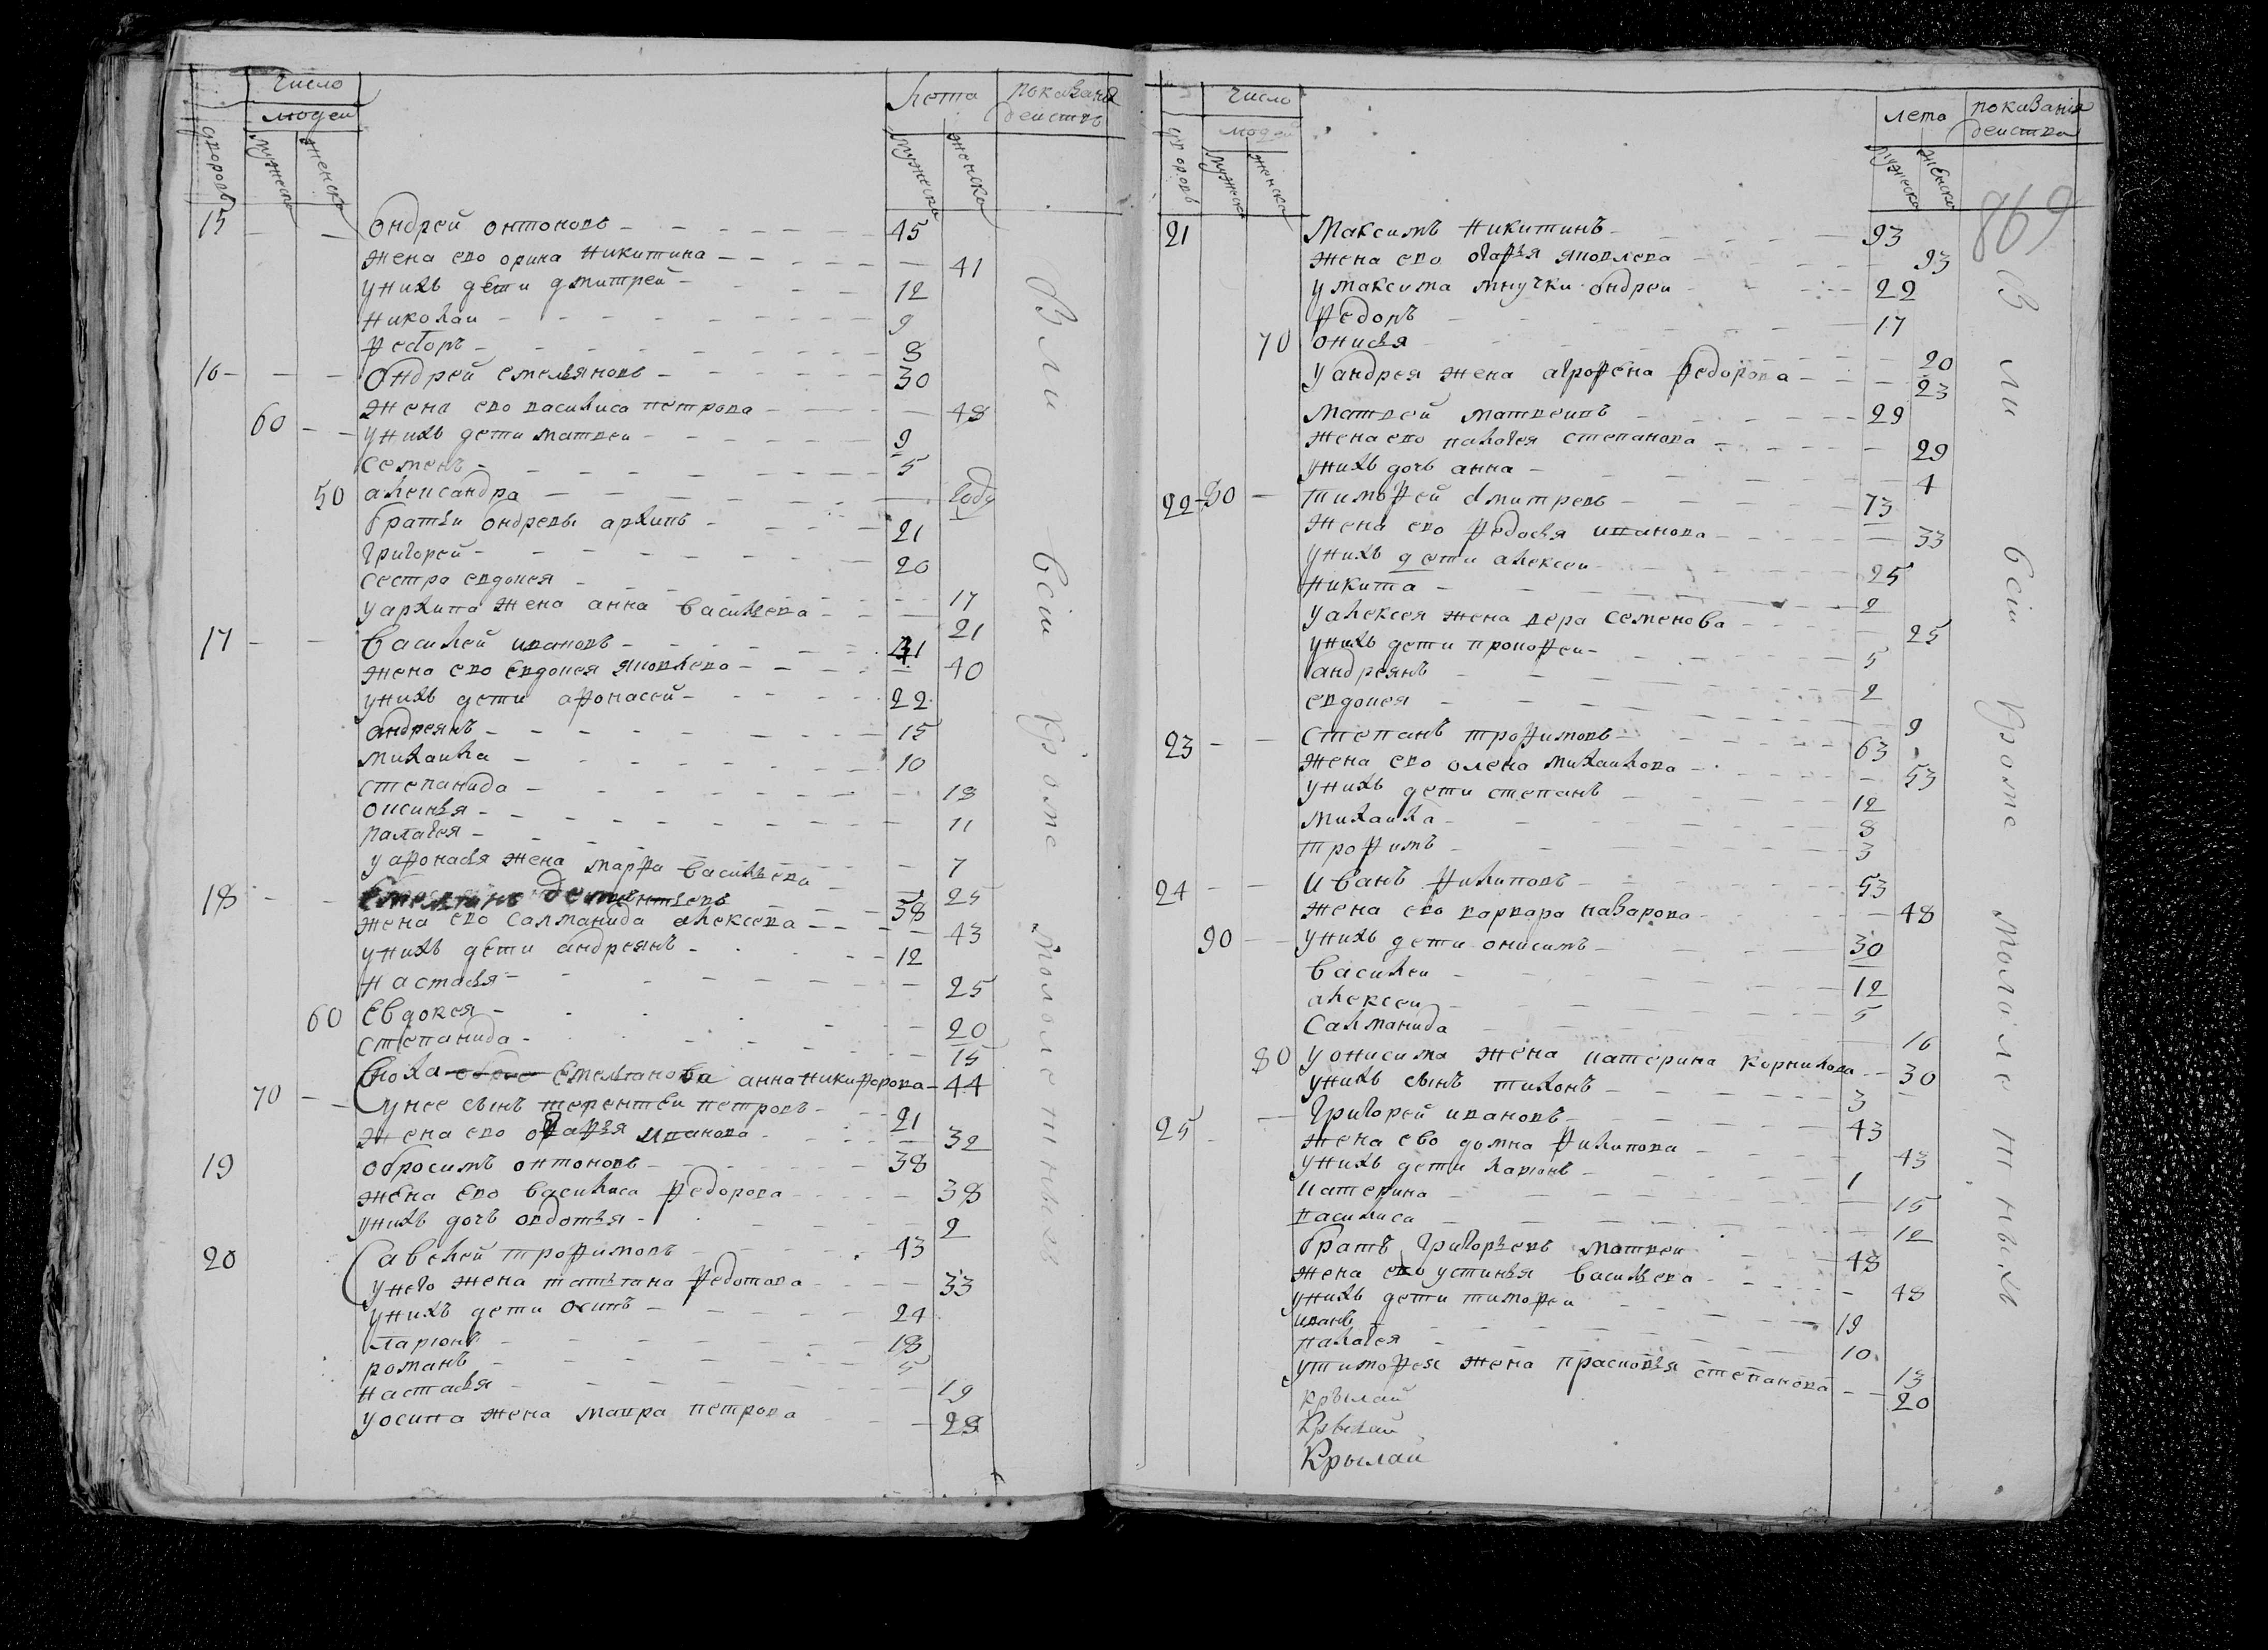 число
людей
лета
показание
действъ
дворовъ
мужеска
женска
мужеска
женска
15 Ондрей онтоновъ 45
жена ево орина никитина 41
у нихъ дети дмитрей 12
николаи 9
Ѳедоръ 8
16 Ондрей емельяновъ 30
жена ево василиса петрова 48
60 у нихъ дети матвеи 9
семенъ 5
50 александра году
братьи ондревы архипъ 21
григорей 20
сестра евдокея 17
у архипа жена анна васильева 21
17 василей ивановъ 41
жена ево евдокея яковлева 40
у нихъ дети афонасей 22
андреянъ 15
михаила 10
степанида 18
оксинья 11
палагея 7
у афонасья жена марфа васильева 25
18 58
жена ево салманида алексева 43
у нихъ дети андреянъ 12
настасья 25
60 Евдокея 20
степанида 15
сноха емельянова анна никифорова 44
70 у нее сынъ терентеи петровъ 21
жена ево дарья иванова 32
19 обросимъ онтоновъ 38
жена ево василиса Ѳедорова 38
у нихъ дочь овдотья 2
20 савелей трофимовъ 43
у него жена татьяна Ѳедотова 33
у нихъ дети осипъ 24
ларионъ 18
романъ 5
настасья 19
у осипа жена мавра петрова 28
Вли всіи кроме малолетныхъ
число
людей
лета
показанія
действа
дворовъ
мужеска
женска
мужеска
женска
869
21 Максимъ никитинъ 93
жена ево огафья яковлева 93
у максима внучки ондреи 22
Ѳедоръ 17
70 онисья 20
у андрея жена агрофена Ѳедорова 23
матвей матвеивъ 29
жена ево палагея степанова 29
у нихъ дочь анна 4
22 80 тимофей дмитревъ 73
жена ево Ѳедосья иванова 33
у нихъ дети алексеи 25
никита 2
у алексея жена вера семенова 25
у нихъ дети прокофеи 5
андреянъ 2
евдокея 9
23 степанъ трофимовъ 63
жена ево олена михаилова 53
у нихъ дети степанъ 12
михаила 8
трофимъ 3
24 иванъ филиповъ 53
жена ево варвара назарова 48
90 у нихъ дети онисимъ 30
василеи 12
алексеи 5
салманида 16
80 у онисима жена катерина корнилова 30
у нихъ сынъ тихонъ 3
25 григорей ивановъ 43
жена ево домна филипова 43
у нихъ дети ларионъ 1
катерина 15
василиса 12
братъ григорьевъ матвеи 48
жена ево устинья васильева 48
у нихъ дети тимофеи 19
иванъ 10
палагея 13
у тимофея жена прасковья степанова 20
крылай
крылай
Крылай
В ли всіи кроме малолетныхъ